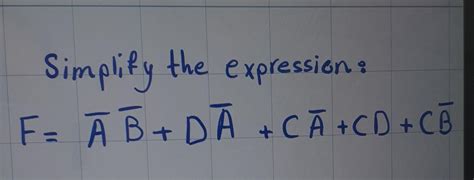 Simplify the expression:
F= A̅ B̅ + D A̅ + C A̅ + C D + C B̅